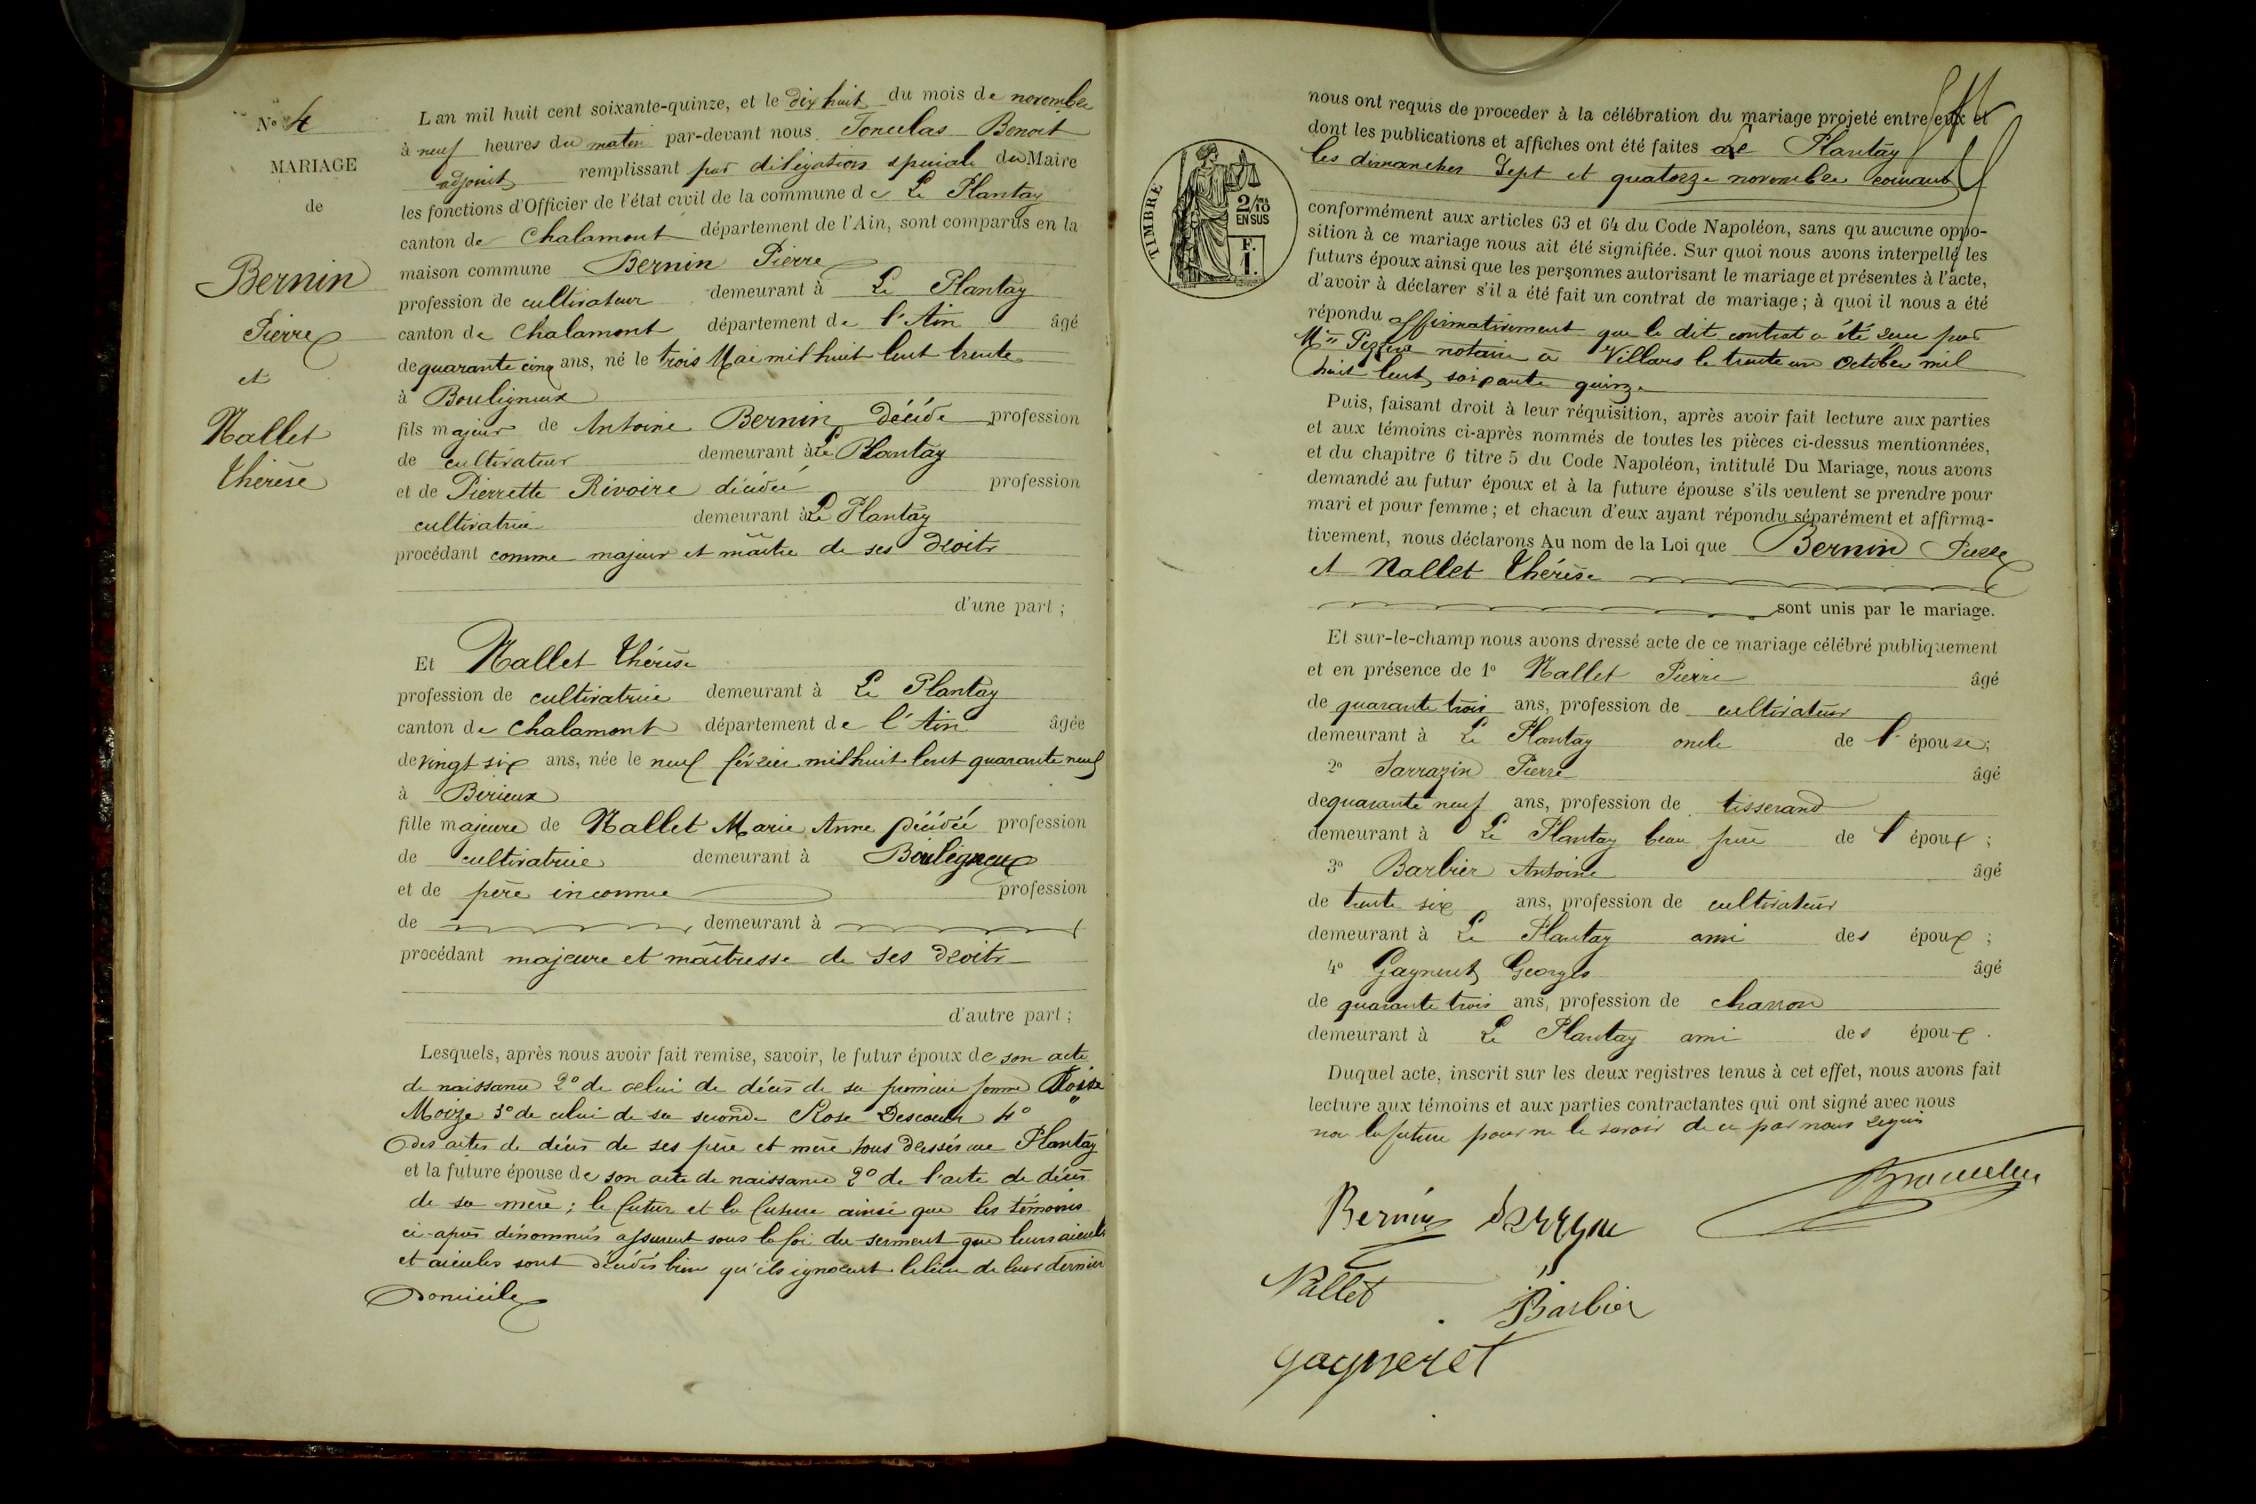 N° 4
MARIAGE
de
Bernin
Pierre
et
Nallet
Thérèse
L an mil huit cent soixante-quinze, et le dix huit du mois de novembre
à neuf heures du matin par-devant nous Benoit
adjoint remplissant par délégation spéciale du Maire
les fonctions d'Officier de l'état civil de la commune de Le Plantay
canton de Chalamont département de l'Ain, sont comparus en la
maison commune Bernin Pierre
profession de cultivateur demeurant à Le Plantay
canton de Chalamont département de l'Ain âgé
de quarante cinq ans, né le trois Mai mil huit cent trente
à Bouligneux
fils majeur de Antoine Bernin décédé profession
de cultivateur demeurant à Le Plantay
et de Pierrette Rivoire décédée profession
cultivatrice demeurant à Le Plantay
procédant comme majeur et maître de ses droits
d'une part ;
Et Nallet Thérèse
profession de cultivatrice demeurant à Le Plantay
canton de Chalamont département de l'Ain âgée
de vingt six ans, née le neuf février mil huit cent quarante neuf
à Birieux
fille majeure de Nallet Marie Anne décédée profession
de cultivatrice demeurant à Bouligneux
et de père inconnue profession
de demeurant à
procédant majeure et maîtresse de ses droits
d'autre part ;
Lesquels, après nous avoir fait remise, savoir, le futur époux de son acte
de naissance 2° de celui de décès de sa première femme
Moize 3° de celui de sa seconde Rose Descours 4°
des actes de décès de ses père et mère tous dressés au Plantay
et la future épouse de son acte de naissance 2° de l'acte de décès
de sa mère ; le futur et la future ainsi que les témoins
ci-après dénommés assurent sous la foi du serment que leurs aieuls
et aieules sont décédés bien qu'ils ignorent le lieu de leur dernier
Domicile
nous ont requis de proceder à la célébration du mariage projeté entre eux et
dont les publications et affiches ont été faites Plantay
les dimanches Sept et quatorze novembre courant
TIMBRE
2/10 EN SUS
F. 1.
conformément aux articles 63 et 64 du Code Napoléon, sans qu aucune oppo-
sition à ce mariage nous ait été signifiée. Sur quoi nous avons interpellé les
futurs époux ainsi que les personnes autorisant le mariage et présentes à l'acte,
d'avoir à déclarer s'il a été fait un contrat de mariage ; à quoi il nous a été
répondu affirmativement que le dit contrat a été reçu par
notaire à Villars le trente un Octobre mil
huit cent soixante quinze
Puis, faisant droit à leur réquisition, après avoir fait lecture aux parties
et aux témoins ci-après nommés de toutes les pièces ci-dessus mentionnées,
et du chapitre 6 titre 5 du Code Napoléon, intitulé Du Mariage, nous avons
demandé au futur époux et à la future épouse s'ils veulent se prendre pour
mari et pour femme ; et chacun d'eux ayant répondu séparément et affirma-
tivement, nous déclarons Au nom de la Loi que Bernin Pierre
et Nallet Thérèse
sont unis par le mariage.
Et sur-le-champ nous avons dressé acte de ce mariage célébré publiquement
et en présence de 1° Nallet Pierre âgé
de quarante trois ans, profession de cultivateur
demeurant à Le Plantay oncle de l'épouse ;
2° Sarrazin Pierre âgé
de quarante neuf ans, profession de tisserand
demeurant à Le Plantay beau frère de l'époux ;
3° Barbier Antoine âgé
de trente six ans, profession de cultivateur
demeurant à Le Plantay ami des époux ;
4° Gagneret Georges âgé
de quarante trois ans, profession de charron
demeurant à Le Plantay ami des époux .
Duquel acte, inscrit sur les deux registres tenus à cet effet, nous avons fait
lecture aux témoins et aux parties contractantes qui ont signé avec nous
non la future pour ne le savoir de ce par nous requis
Bernin
Nallet Barbier
gagneret